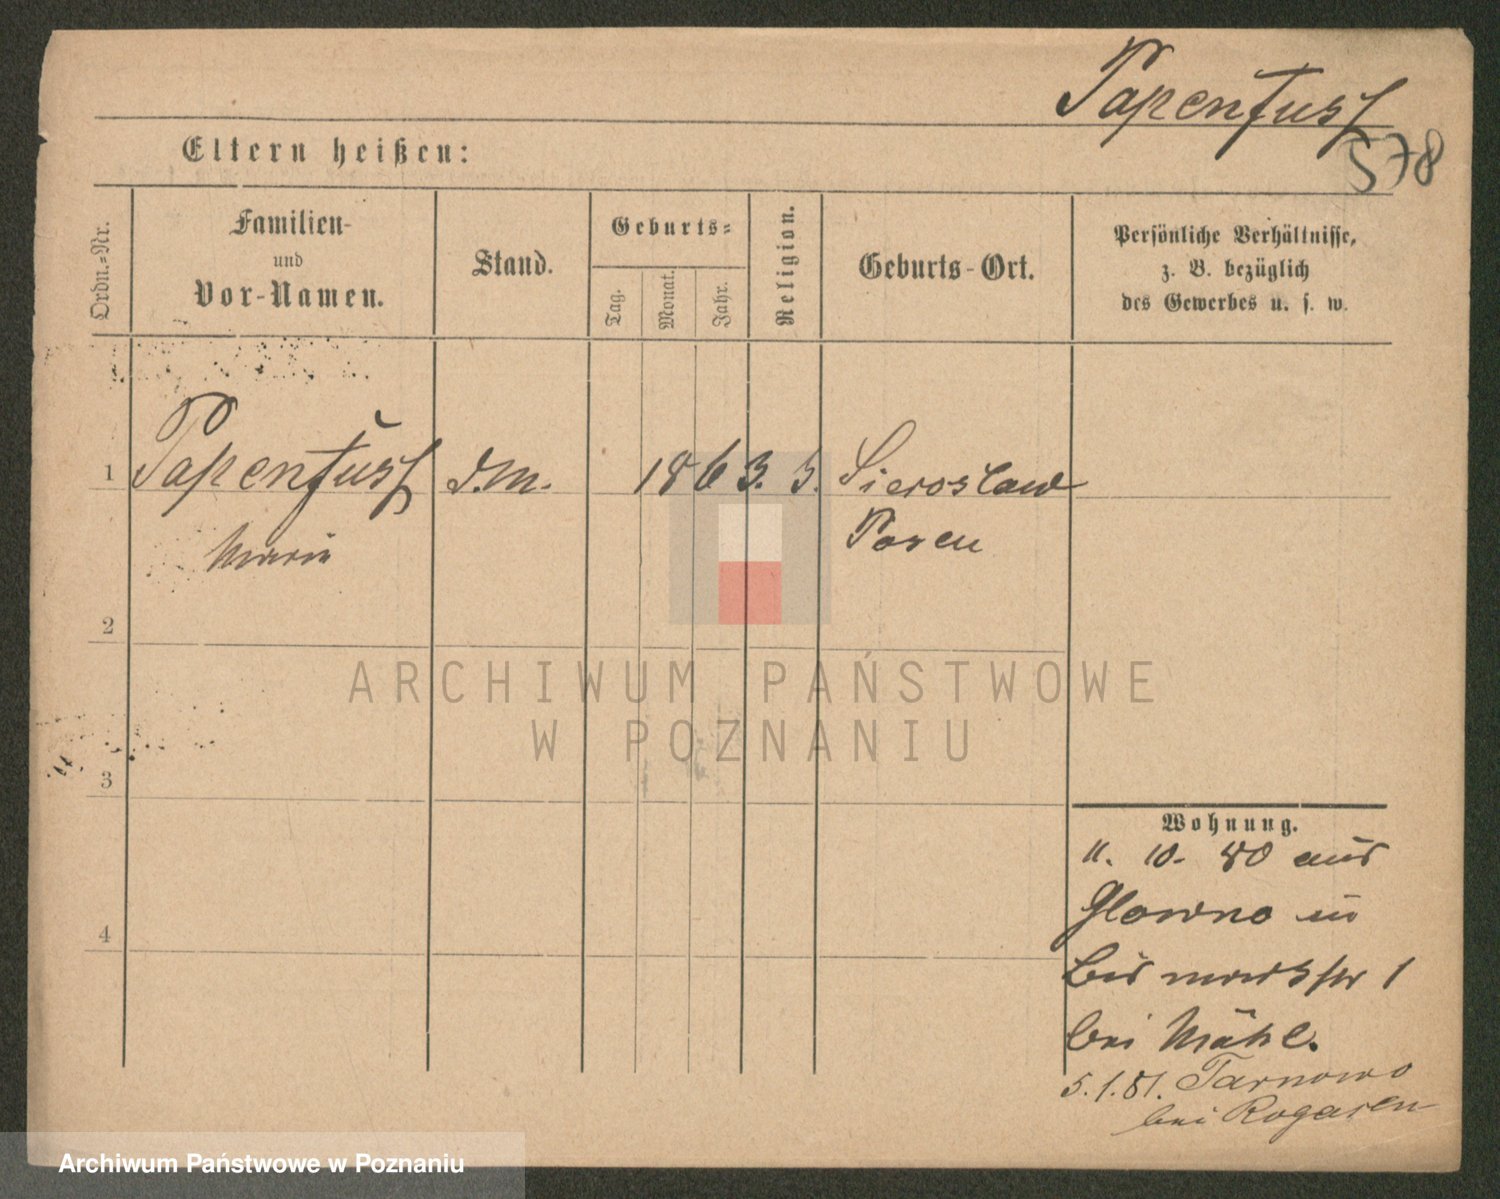 Papenfuss
578
Eltern heißen:
Ordn.-Nr.
Familien-
und
Vor-Namen.
Stand.
Geburts-
Tag.
Monat.
Jahr.
Religion.
Geburts-Ort.
Persönliche Verhältnisse,
z. B. bezüglich
des Gewerbes u. s. w.
1 Papenfuss d.M. 1863. Sieroslaw
Marie Posen
2
3
4
Wohnung.
11. 10. 80 aus
Glowno in
Bismarckstr 1
bei
5.1.81. Tarnowo
bei Rogasen
ARCHIWUM PAŃSTWOWE
W POZNANIU
Archiwum Państwowe w Poznaniu